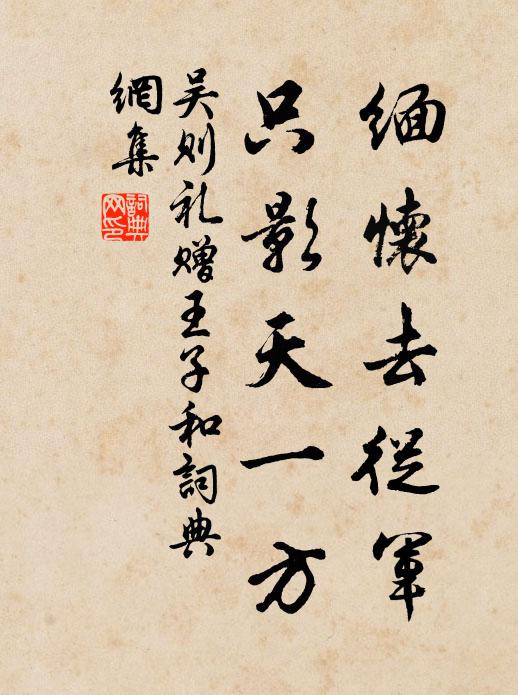 緬懷去從軍
只影天一方
吴則礼贈王子和詞典
網集
詞典
网印